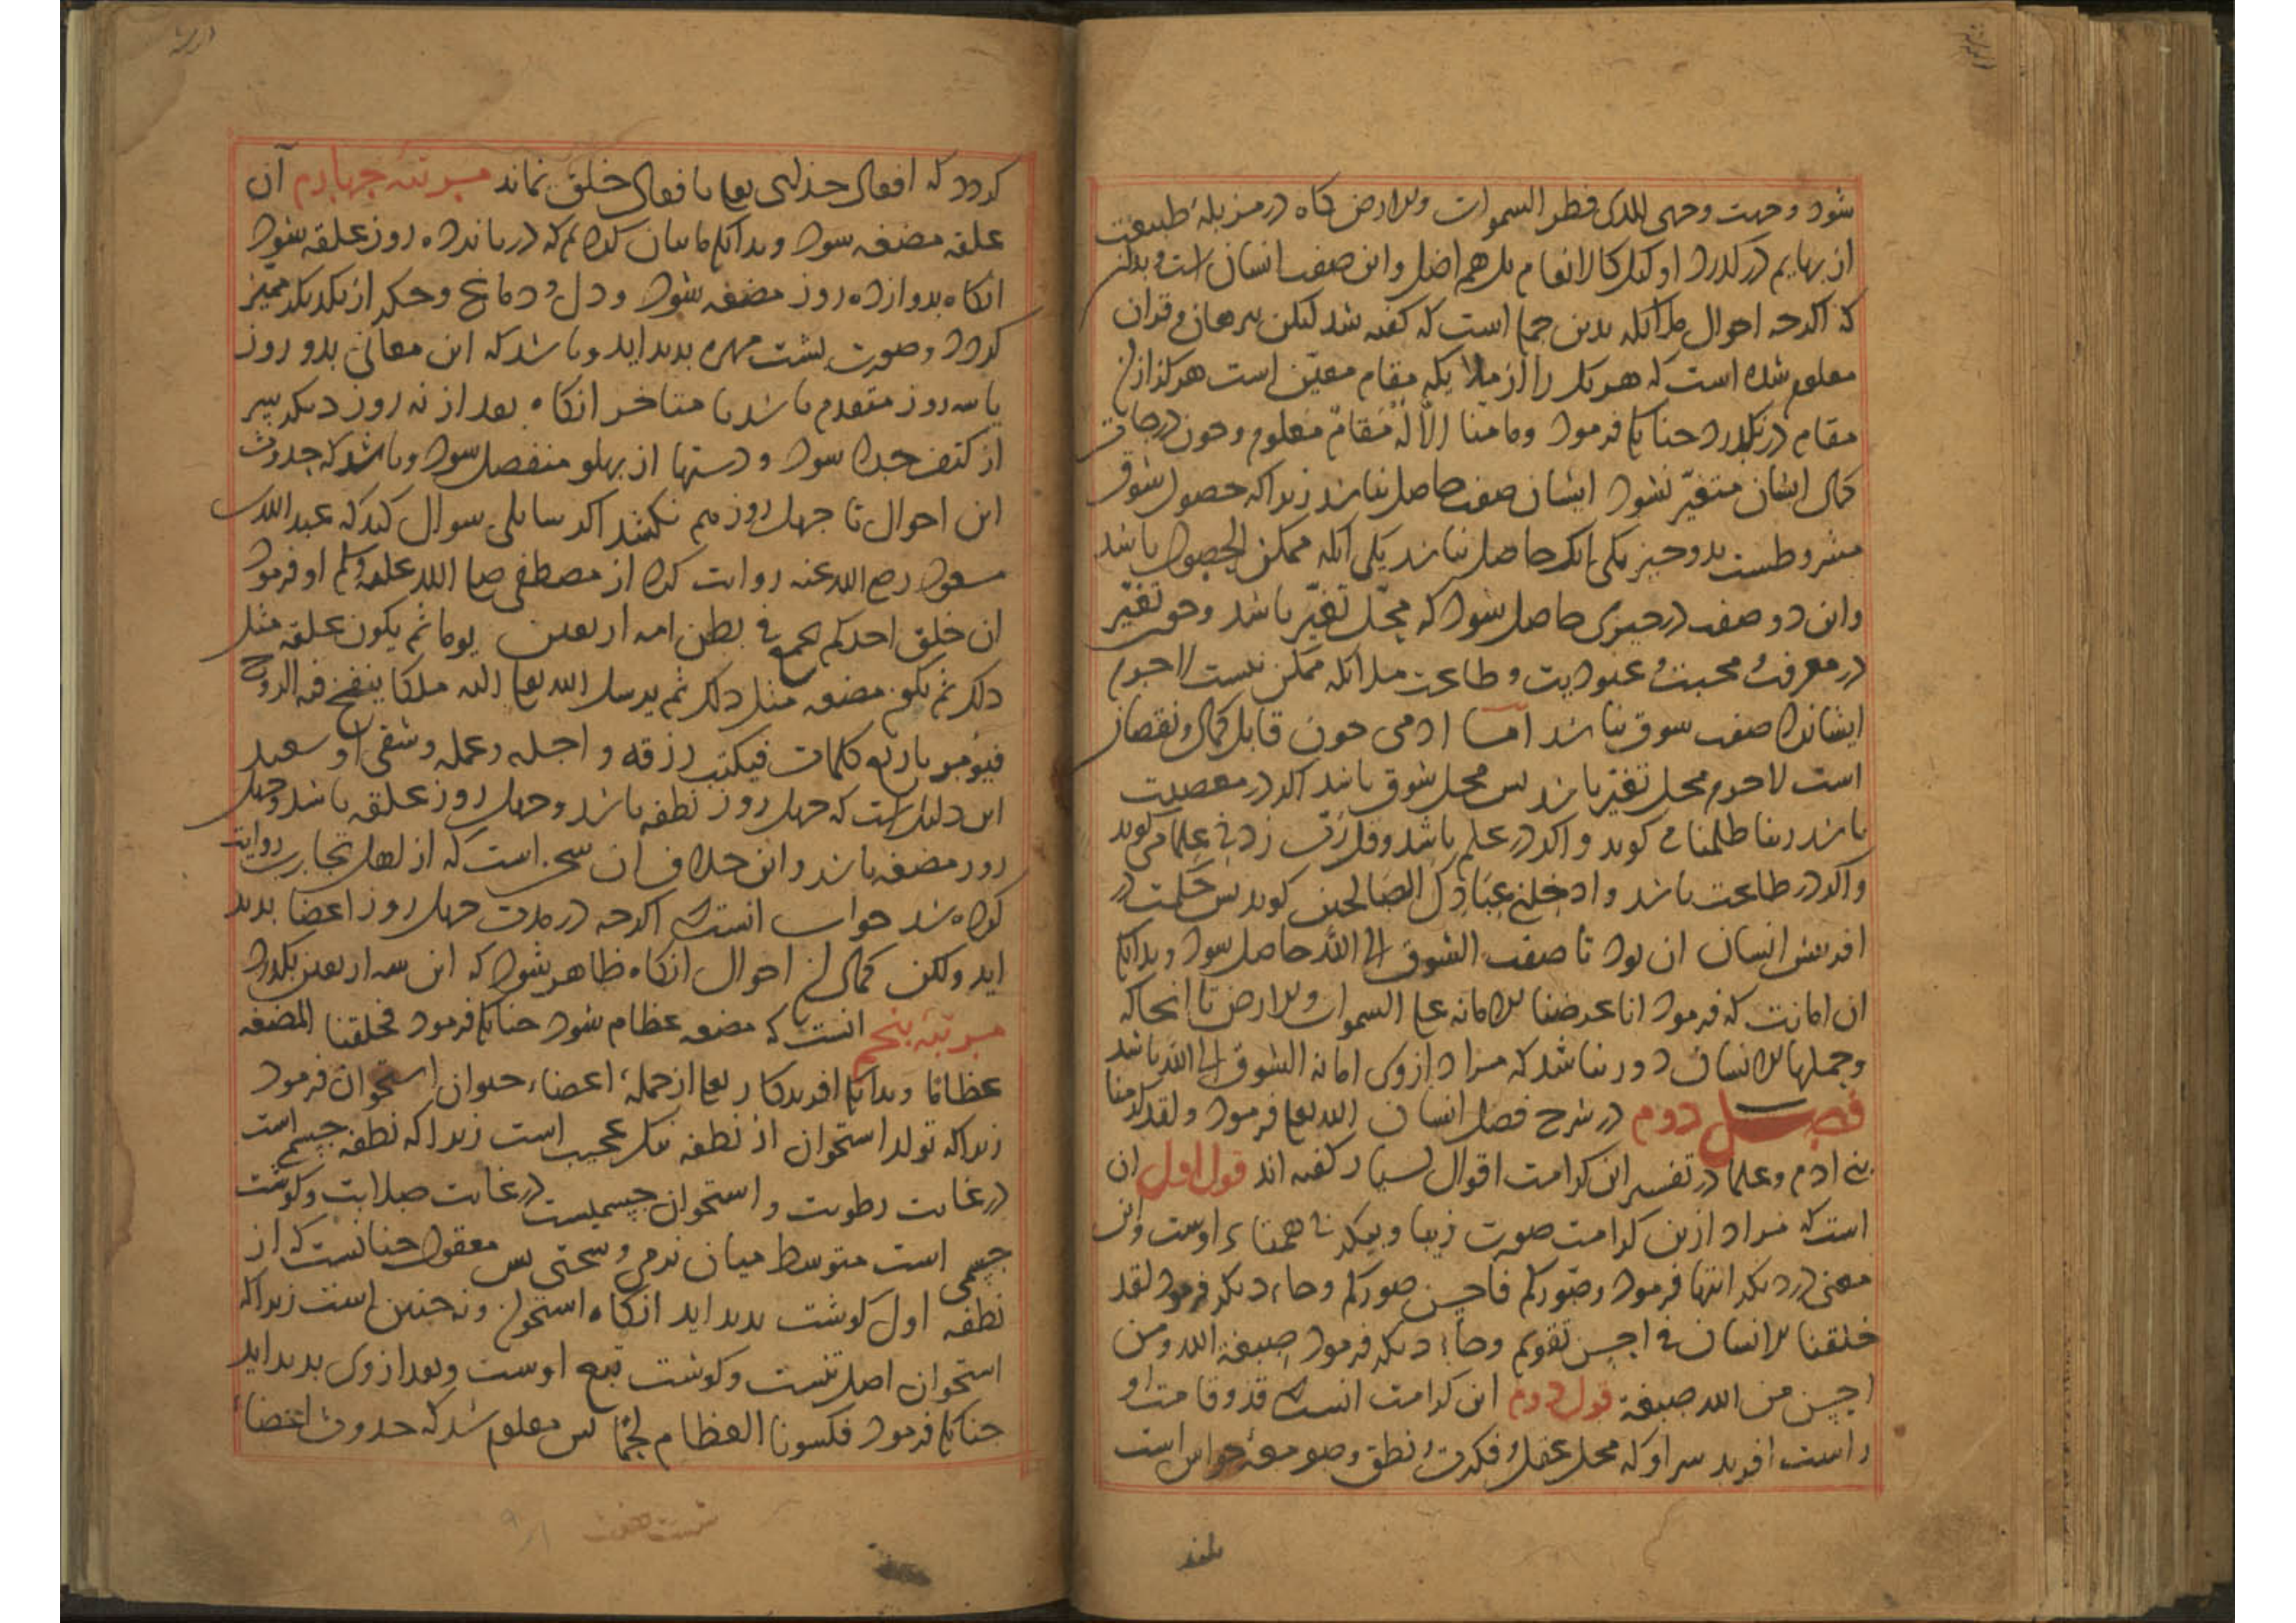 شود وجهت وجهی للذی فطر السموات والارض کاه در مزبلهٔ طبیعت
از بهایم در کذرد اولئک کالانعام بل هم اضل و این صفت انسان است و بدانک
که اکرچه احوال ملائکه بدین جمله است که کفته شد لیکن ببرهان و قران
معلوم شده است که هر یک را از ملایکه مقام معین است هرکز از ان
مقام در نکذرد چنانکه فرمود وما منا الا له مقام معلوم و چون درجات
کمال ایشان متغیّر نشود ایشان صفت حاصل نباشد زیرا که حصول شوق
مشروطست بدو چیز یکی انک حاصل نباشد یکی انکه ممکن الحصول باشد
و این دو صفت در چیزی حاصل شود که محل تغیّر باشد و چون تغیّر
در معرفت و محبت و عبودیت و طاعت ملائکه ممکن نیست لاجرم
ایشانرا صفت شوق نباشد اما ادمی چون قابل کمال و نقصان
است لاجرم محل تغیّر باشد پس محل شوق باشد اکر در معصیت
باشد ربنا ظلمنا می کوید و اکر در علم باشد وقل رب زدنی علما می کوید
و اکر در طاعت باشد وادخلنی عبادک الصالحین کوید پس حکمت در
افرینش انسان ان بود تا صفت الشوق الی الله حاصل شود و بدانک
ان امانت که فرمود انا عرضنا الامانه علی السموات والارض تا انجا که
وحملها الانسان دور نباشد که مراد از وی امانه الشوق الی الله باشد
فصل دوم در شرح فضل انسان الله تعالی فرمود ولقد کرمنا
بنی ادم و علما در تفسیر این کرامت اقوال بسیار کفته اند قول اول ان
است که مراد ازین کرامت صورت زیبا و پیکر بی همتاء اوست و این
معنی در دیکر ایتها فرمود وصورکم فاحسن صورکم و جاء دیکر فرمود لقد
خلقنا الانسان فی احسن تقویم و جاء دیکر فرمود صبغة الله ومن
احسن من الله صبغة قول دوم این کرامت انست که قد و قامت او
راست افرید سر او که محل عقل و فکرت و نطق و صومعهٔ حواس است
کردد که افعال خدای تعالی بافعال خلق نماند مرتبهٔ چهارم آن
علقه مضغه شود و بدانکه ما بیان کرده ایم که در پانزده روز علقه شود
انکاه بدوازده روز مضغه شود و دل و دماغ و جکر از یکدیکر ممیز
کردد و صورت پشت مهره بدید اید و باشد که این معانی بدو روز
یا سه روز متقدم باشد یا متاخر انکاه بعد از نه روز دیکر سر
از کتف جدا شود و دستها از پهلو منفصل شود و باشد که حدوث
این احوال تا چهل روز هم بکشد اکر سایلی سوال کند که عبدالله
مسعود رضی الله عنه روایت کرد از مصطفی صلی الله علیه وسلم او فرمود
ان خلق احدکم یجمع فی بطن امه اربعین یوما ثم یکون علقه مثل
ذلک ثم یکون مضغه مثل ذلک ثم یرسل الله تعالی الیه ملکا ینفخ فیه الروح
فیؤمر باربع کلمات فیکتب رزقه واجله وعمله وشقی او سعید
این دلیل است که چهل روز نطفه باشد و چهل روز علقه باشد و چهل
روز مضغه باشد و این خلاف ان سخن است که از اهل تجارب روایت
کرده شد جواب انست که اکرچه در مدت چهل روز اعضا بدید
اید ولکن کمال ان احوال انکاه ظاهر شود که این سه اربعین بکذرد
مرتبهٔ پنجم انست که مضغه عظام شود چنانکه فرمود فخلقنا المضغه
عظاما و بدانکه افریدکار تعالی از جملهٔ اعضاء حیوان استخوان فرمود
زیرا که تولد استخوان از نطفه بکر عجیب است زیرا که نطفه جسمی است
در غایت رطوبت و استخوان جسمیست در غایت صلابت و کوشت
جسمی است متوسط میان نرمی و سختی پس معقول چنانست که از
نطفه اول کوشت بدید اید انکاه استخوان و نه چنین است زیرا که
استخوان اصل تنست و کوشت تبع اوست و بعد از وی بدید اید
چنانکه فرمود فکسونا العظام لحما پس معلوم شد که حدوث اعضاء
شصت هفت